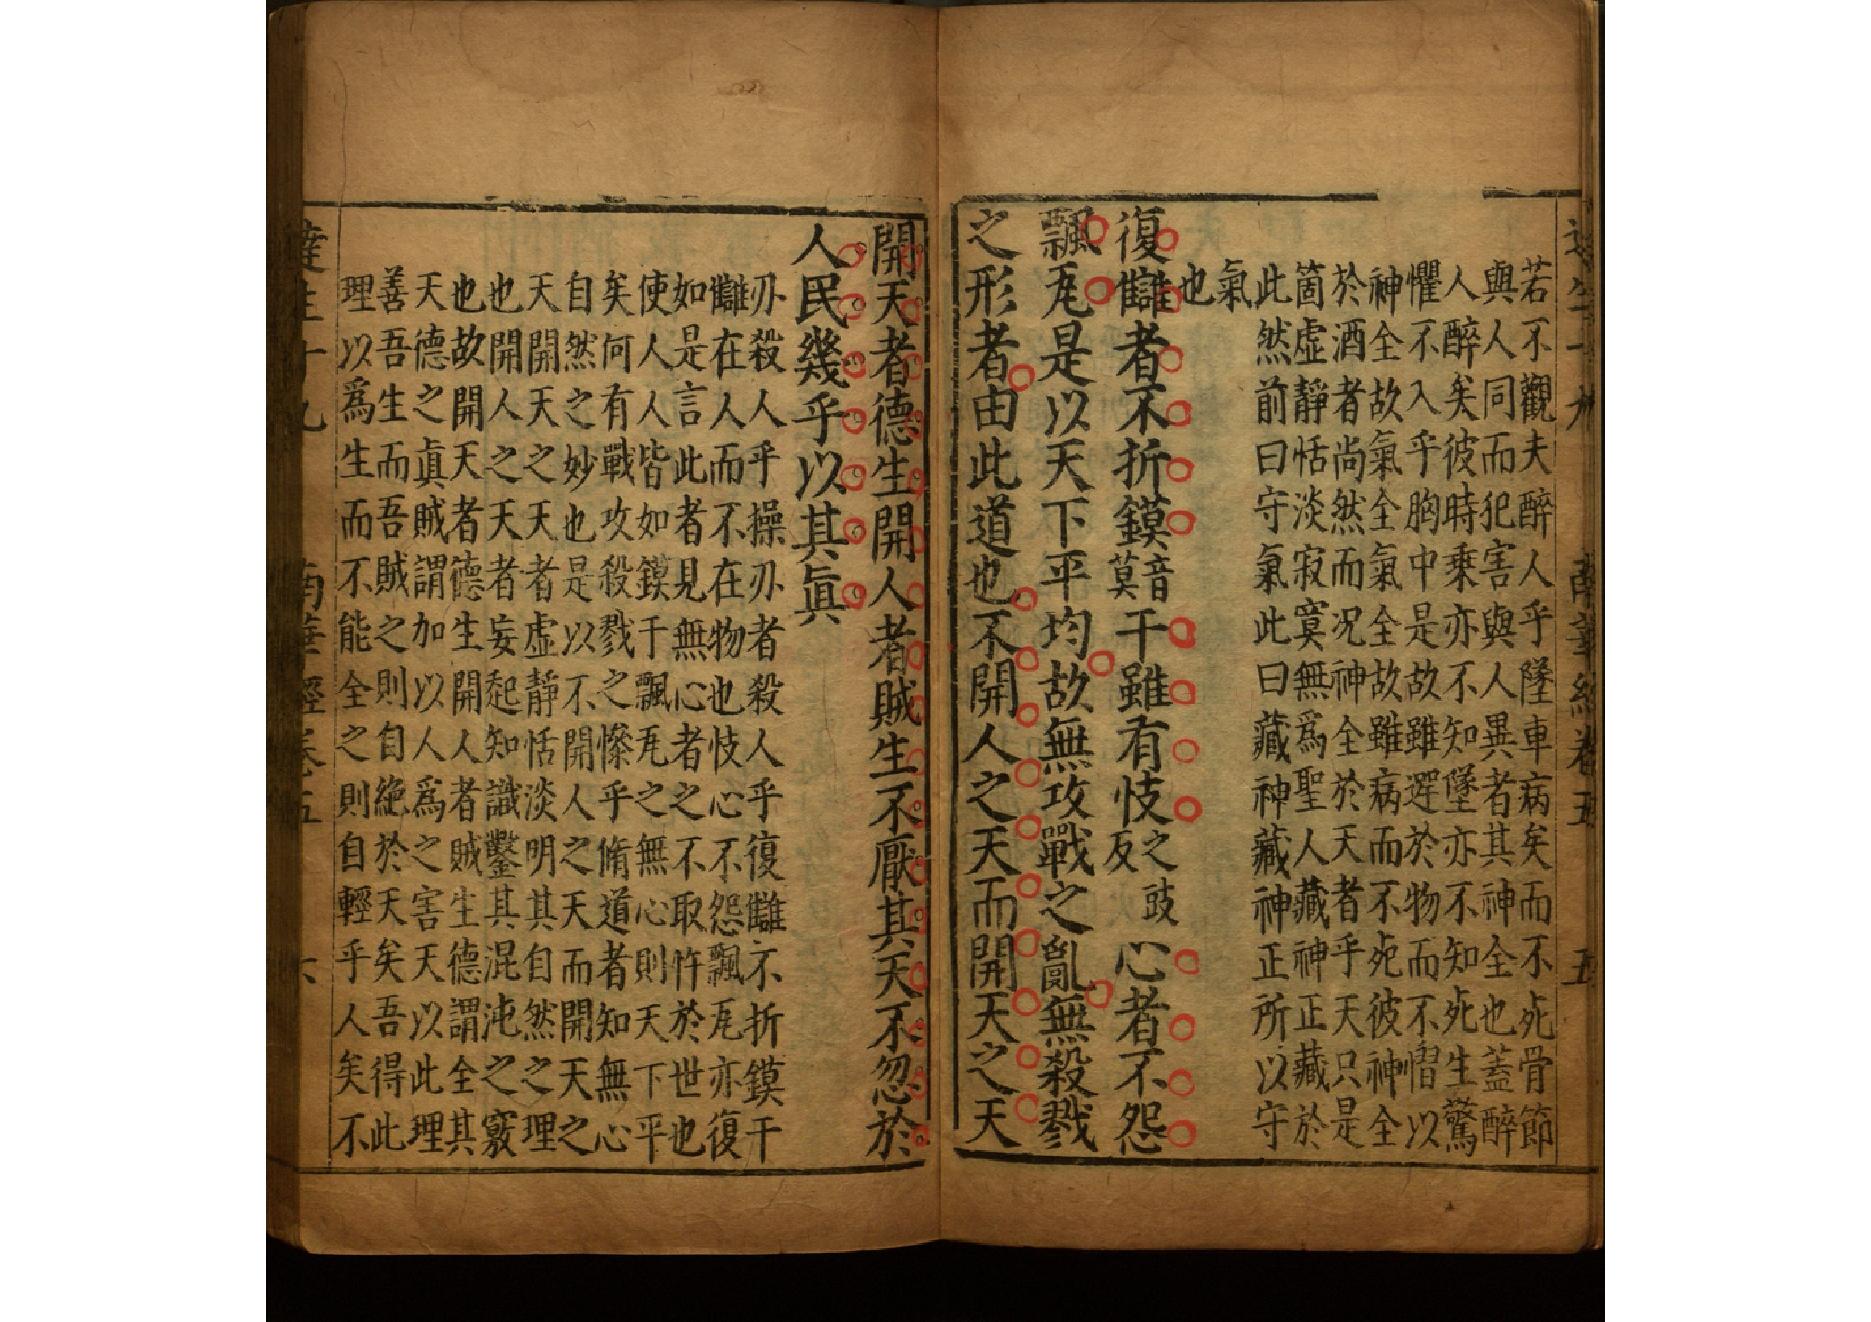 達生十九 南華經卷五 五
若不觀夫醉人乎墜車病矣而不死骨節
與人同而犯害與人異者其神全也蓋醉
人醉矣彼時乘亦不知墜亦不知死生驚
懼不入乎胸中是故雖遻於物而不慴以
神全故氣全氣全故雖病而不死彼神全
於酒者尚然而况神全於天者乎天只是
箇虛靜恬淡寂寞無爲聖人藏神正藏於
此然前曰守氣此曰藏神藏神正所以守
氣
也
復讎者不折鏌音莫干雖有忮之豉反心者不怨
飄瓦是以天下平均故無攻戰之亂無殺戮
之形者由此道也不開人之天而開天之天
開天者德生開人者賊生不厭其天不忽於
人民幾乎以其眞
刃殺人乎操刃者殺人乎復讎不折鏌干
讎在人而不在物也忮心不怨飄瓦亦復
如是言此者見無心者之不取忤於世也
使人人皆如鏌干飄瓦之無心則天下平
矣何有戰攻殺戮之慘乎脩道者知無心
自然之妙也是以不開人之天而開天之
天開天之天者虛靜恬淡明其自然之理
也開人之天者妄起知識鑿其混沌之竅
也故開天者德生開人者賊生德謂全其
天德之眞賊謂加以人爲之害天以此理
善吾生而吾賊之則自絶於天矣吾得此
理以爲生而不能全之則自輕乎人矣不
達生十九 南華經卷五 六